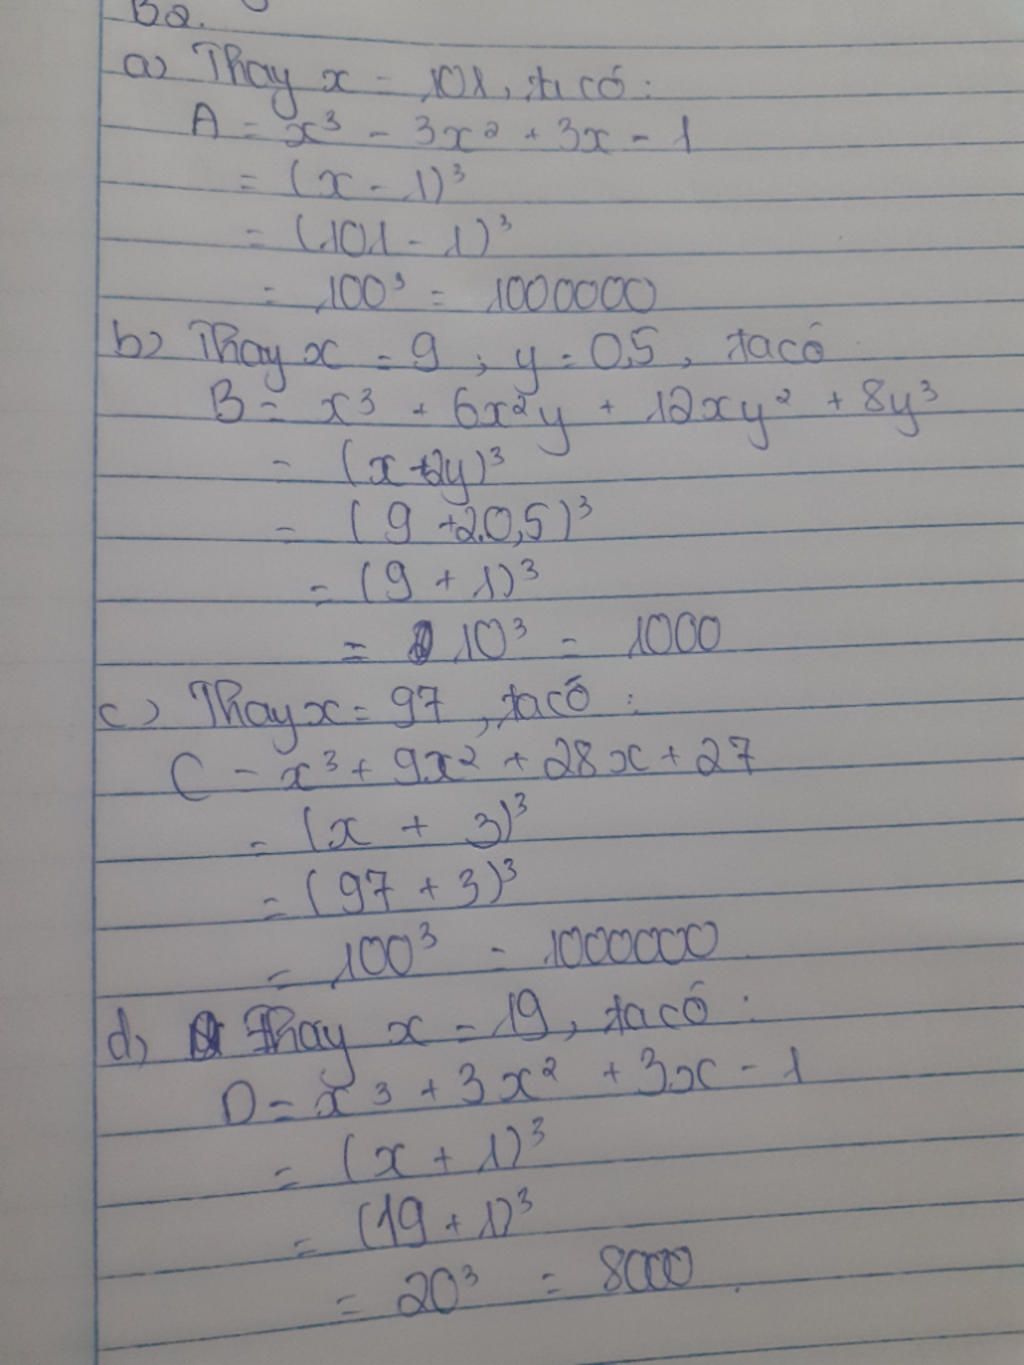 B2.
a) Thay x = 101, ta có:
A = x³ - 3x² + 3x - 1
= (x - 1)³
= (101 - 1)³
= 100³ = 1000000
b) Thay x = 9 ; y = 0,5, ta có
B = x³ + 6x²y + 12xy² + 8y³
= (x+2y)³
= (9 +2.0,5)³
= (9 + 1)³
= 10³ = 1000
c) Thay x = 97, ta có:
C = x³ + 9x² + 28x + 27
= (x + 3)³
= (97 + 3)³
= 100³ = 1000000
d) Thay x = 19, ta có:
D = x³ + 3x² + 3x - 1
= (x + 1)³
= (19 + 1)³
= 20³ = 8000